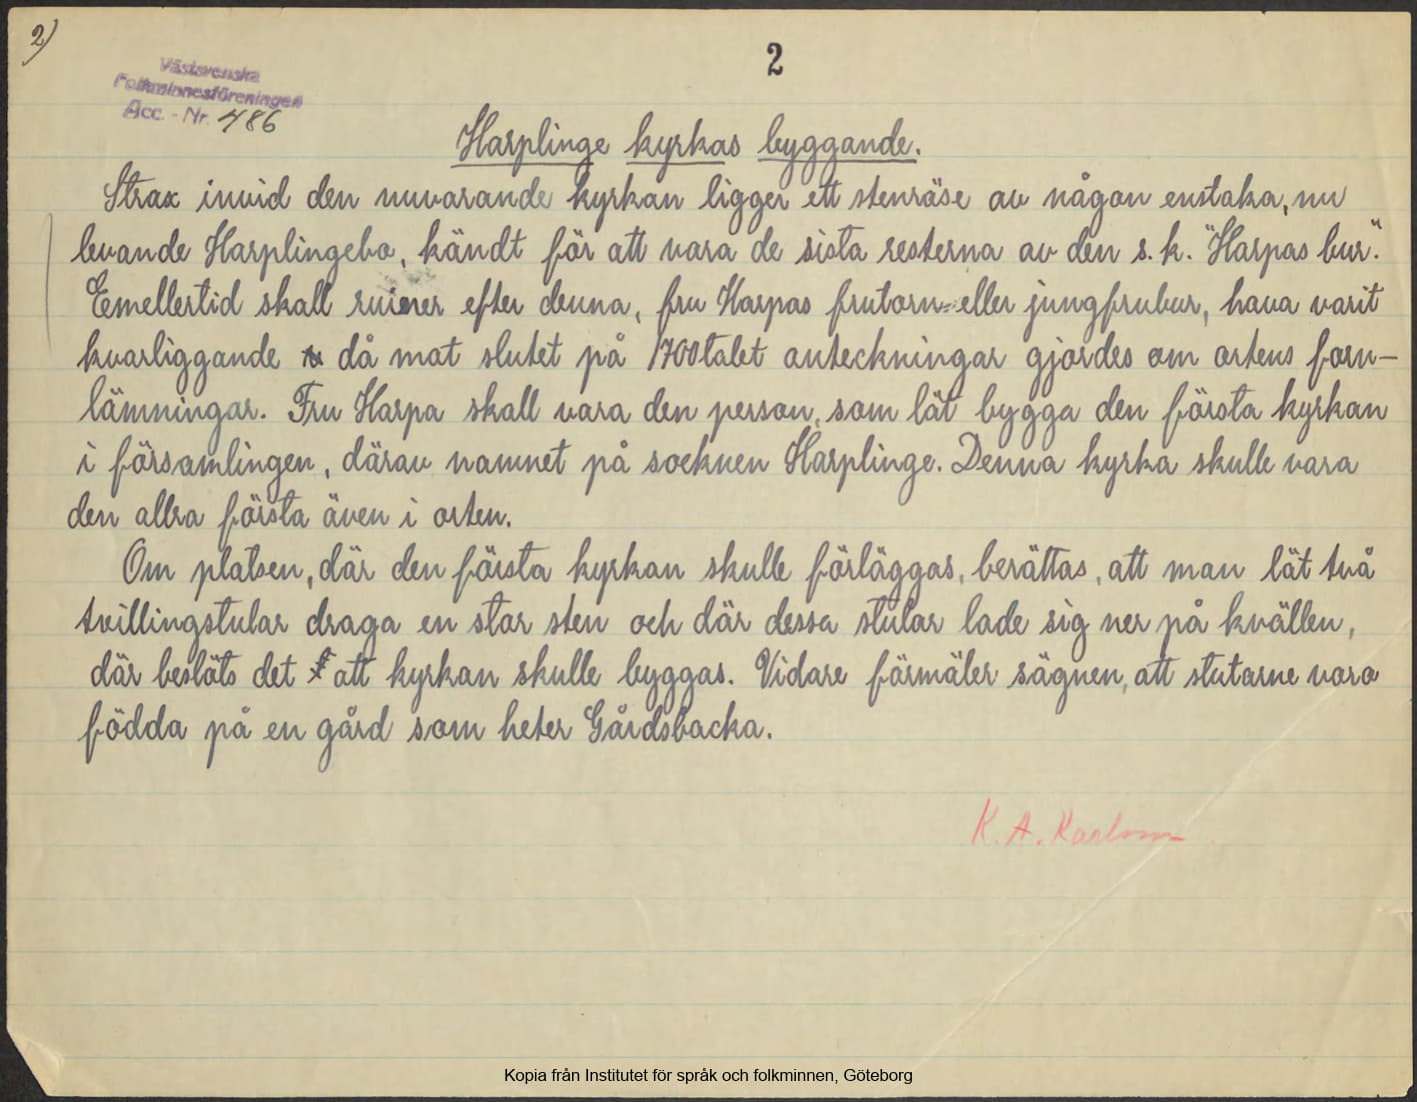 2)
2
Västsvenska
Folkminnesföreningen
Acc. - Nr. 486
Harplinge kyrkas byggande.
Strax invid den nuvarande kyrkan ligger ett stenröse av någon enstaka, nu
levande Harplingebo, kändt för att vara de sista resterna av den s. k. "Harpas bur".
Emellertid skall ruiner efter denna, fru Harpas frutorn- eller jungfrubur, hava varit
kvarliggande då mot slutet på 1700talet anteckningar gjordes om ortens forn-
lämningar. Fru Harpa skall vara den person, som lät bygga den första kyrkan
i församlingen, därav namnet på socknen Harplinge. Denna kyrka skulle vara
den allra första även i orten.
Om platsen, där den första kyrkan skulle förläggas, berättas, att man lät två
tvillingstutar draga en stor sten och där dessa stutar lade sig ner på kvällen,
där beslöts det att kyrkan skulle byggas. Vidare förmäler sägnen, att stutarne voro
födda på en gård som heter Gårdsbacka.
K. A. Karlsson
Kopia från Institutet för språk och folkminnen, Göteborg